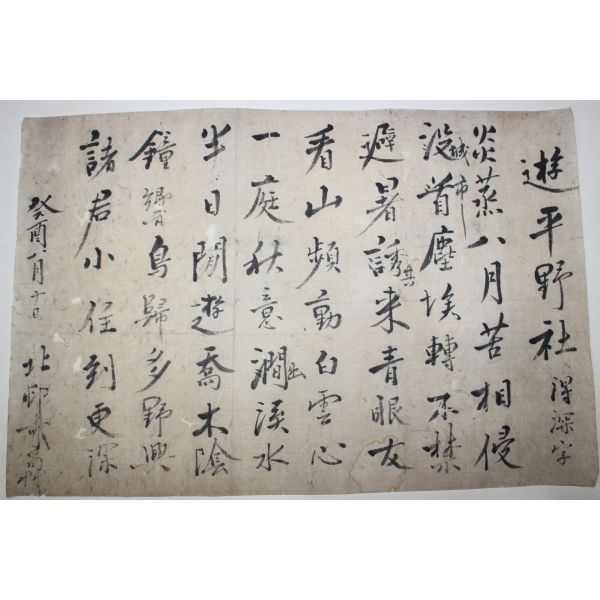 遊平野社 得深字
炎蒸八月苦相侵
城市
没首塵埃轉不禁
共
避暑誘来青眼友
看山頻動白雲心
一庭秋意澗溪水
半日閒遊喬木陰
鐘響鳥歸多野興
諸君小住到更深
癸酉八月十日 北邨